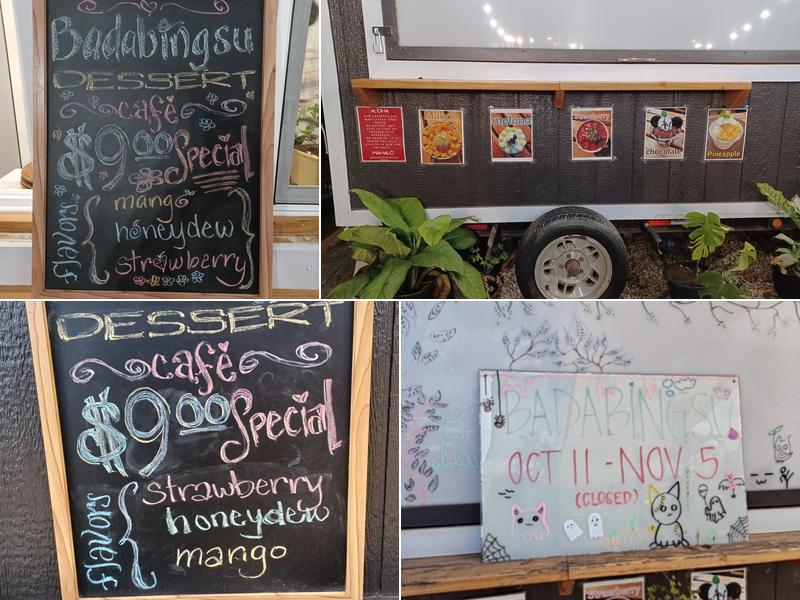 Badabingsu
DESSERT
café
$9.00 Special
flavors
mango
honeydew
strawberry
ALOHA
MAHALO
melona
Strawberry
chocolate
Pineapple
DESSERT
café
$9.00 Special
flavors
strawberry
honeydew
mango
BADABINGSU
OCT 11 - NOV 5
(CLOSED)